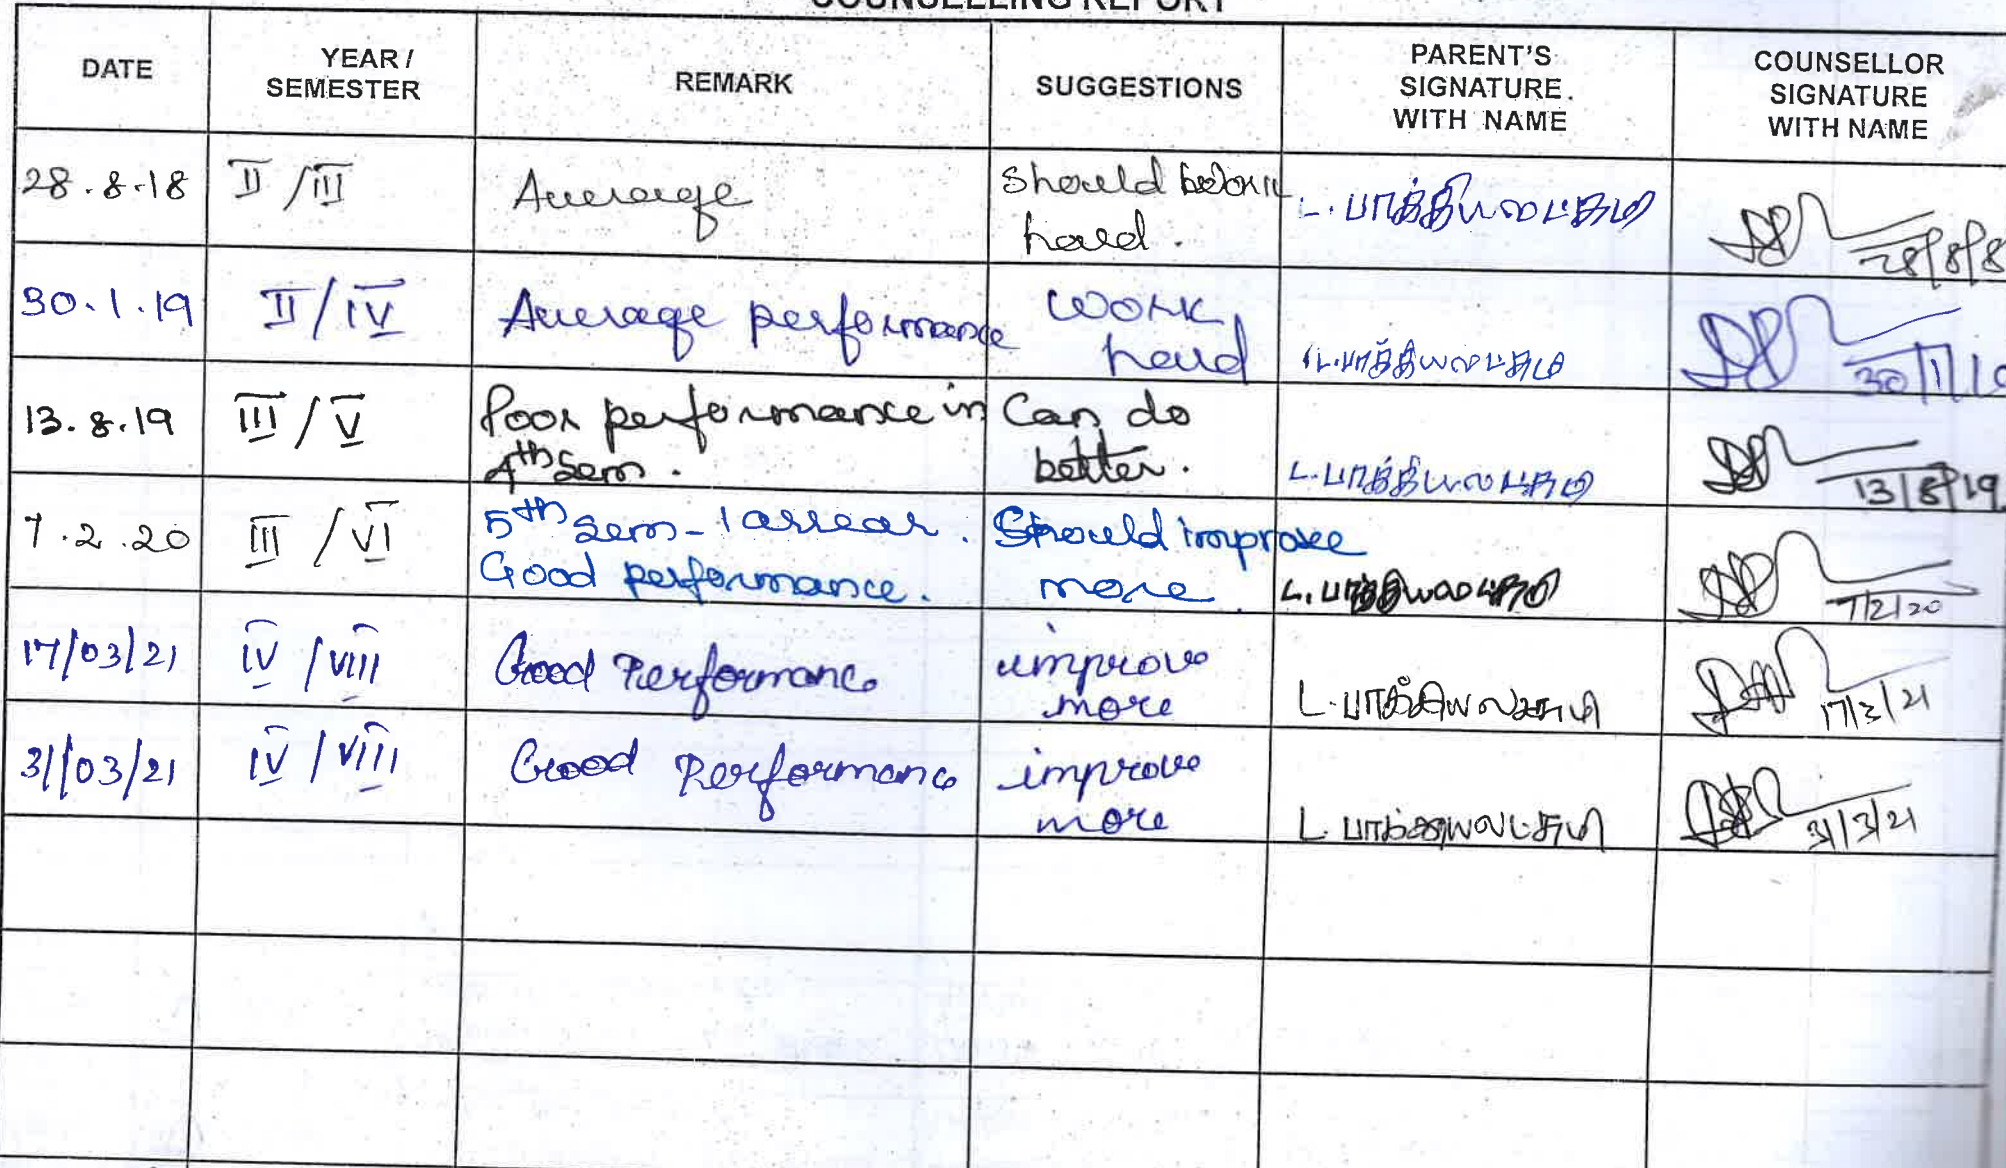 COUNSELLING REPORT
DATE
YEAR /
SEMESTER
REMARK
SUGGESTIONS
PARENT'S
SIGNATURE.
WITH NAME
COUNSELLOR
SIGNATURE
WITH NAME
28.8.18
II / III
Average
Should work
hard.
L. பாக்கியலட்சுமி
28/8/8
30.1.19
II / IV
Average performance
work
hard
L. பாக்கியலட்சுமி
30/1/19
13.8.19
III / V
Poor performance in
4th Sem.
Can do
better.
L. பாக்கியலட்சுமி
13/8/19
7.2.20
III / VI
5th Sem - 1 arrear.
Good performance.
Should improve
more.
L. பாக்கியலட்சுமி
7/2/20
17/03/21
IV / VIII
Good Performance
improve
more
L. பாக்கியலட்சுமி
17/3/21
31/03/21
IV / VIII
Good Performance
improve
more
L. பாக்கியலட்சுமி
31/3/21